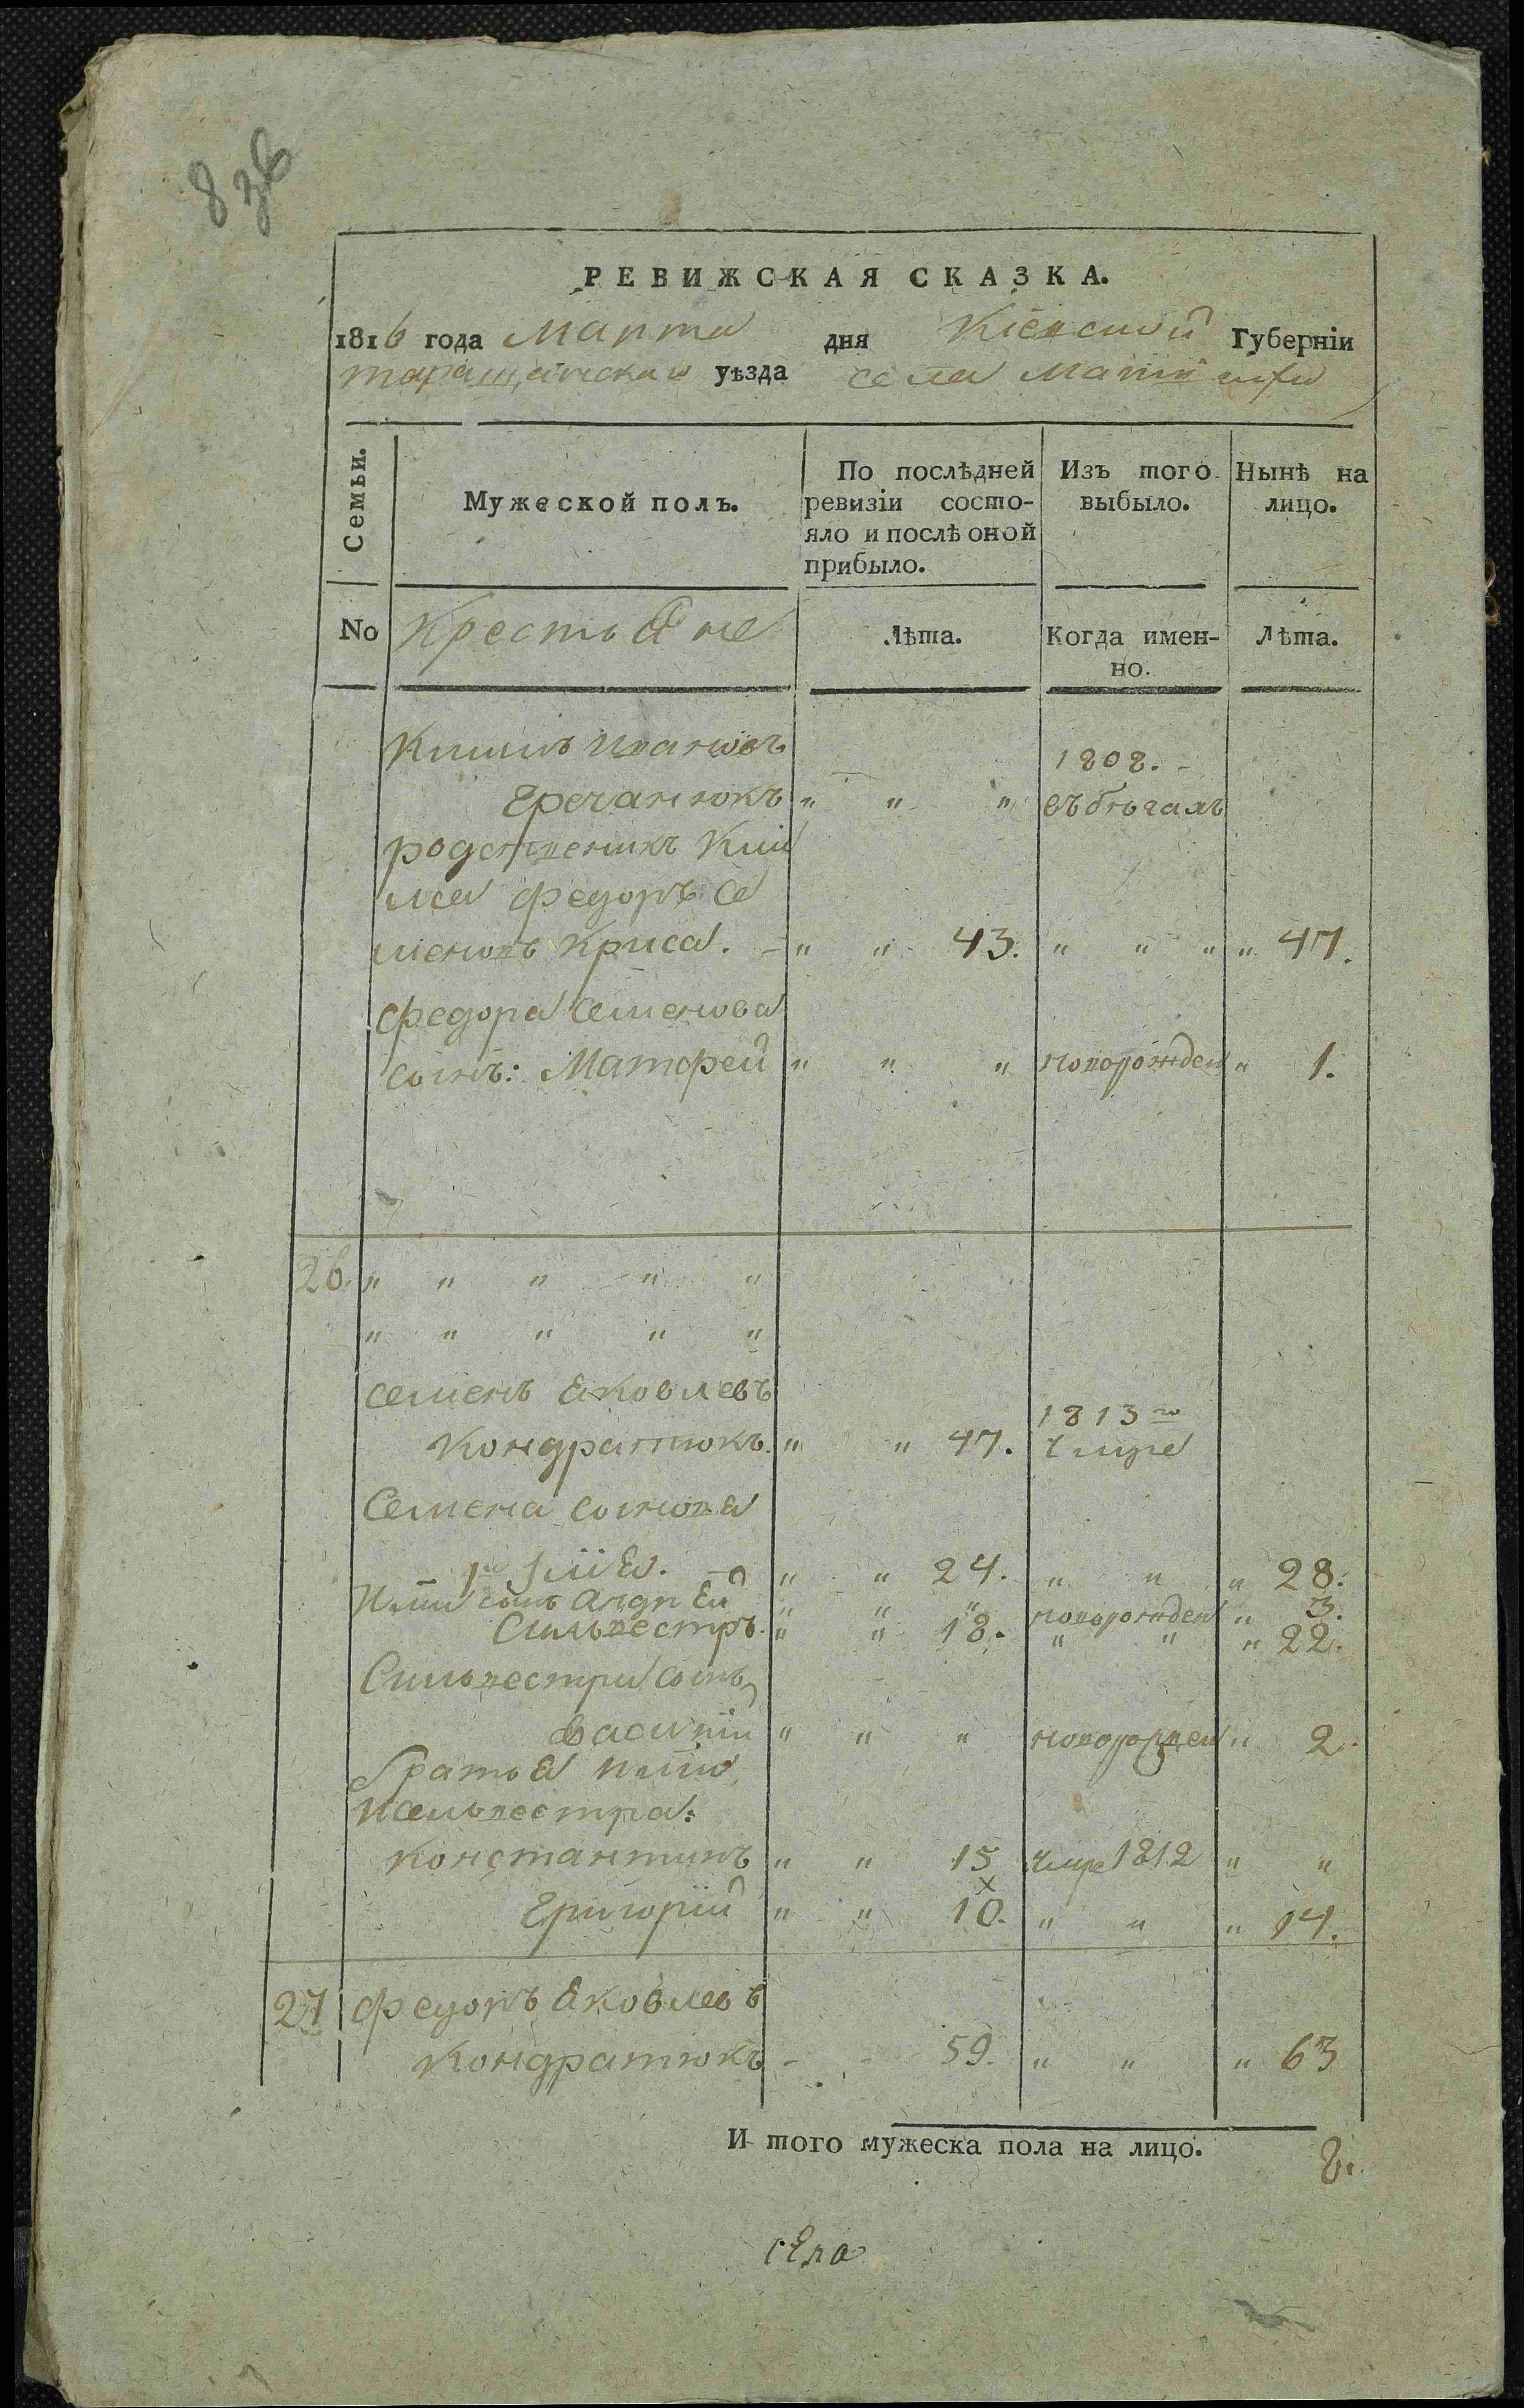 836
РЕВИЖСКАЯ СКАЗКА.
1816 года Марта дня Кіевской Губерніи
таращанскаго уѣзда села
Семьи.
Мужеской полъ.
По послѣдней ревизіи состо-
яло и послѣ оной
прибыло.
Изъ того
выбыло.
Нынѣ на
лицо.
No Крестьяне Лѣта. Когда имен-
но. Лѣта.
Климъ Ивановъ 1808.
Гречанюкъ " " " въ бѣгахъ
родственикъ Кли
ма Федоръ Се
меновъ Криса. " " 43. " " " " 47.
Федора Семенова
сынъ: Матфей " " " новорожден " 1.
26. " " " " "
" " " " "
Семенъ Яковлевъ
Кондратюкъ. " " 47. 1813го умре
Семена сыновя
1й Илія. " " 24. " " " 28.
Иліи сынъ Андрей " " " новорожден " 3.
Сильвестръ. " " 18. " " " 22.
Сильвестра сынъ
Василій " " " новорожден " 2.
братья Иліи
и Сельвестра:
Константинъ " " 15 умре 1812 " "
х
Григорій " " 10. " " " 14.
27 Федоръ Яковлевъ
Кондратюкъ - - 59. " " " 63
И того мужеска пола на лицо. 8.
села